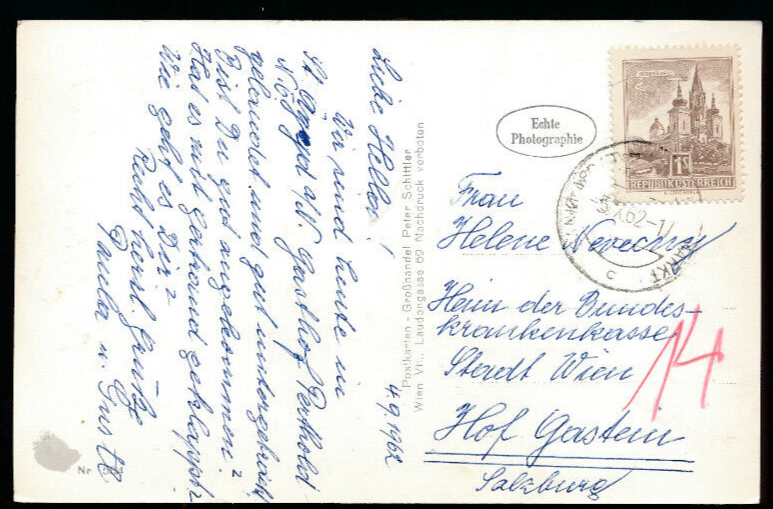 4.9.1962
Liebe Helli!
Wir sind heute in
St. Aegyd a/N. Gasthof Perthold
N.Ö. gelandet und gut untergebracht
Bist Du gut angekommen?
Hat es mit Gertraud geklappt?
Wie geht es Dir?
Recht herzl. Grüße
Paula u. Gustl
Nr
Postkarten - Großhandel Peter Schittler
Wien VII., Laudongasse 69 Nachdruck verboten
Echte
Photographie
1S
REPUBLIK ÖSTERREICH
62-17
MARKT
Frau
Helene
Heim der Bundes-
krankenkasse
Stadt Wien
Hof Gastein
Salzburg
14